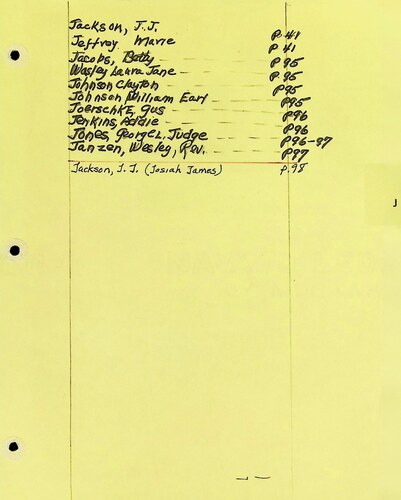 Jackson, J.J. p. 41
Jeffrey Marie p 41
Jacobs, Betty p 95
Wesley Laura Jane p. 95
Johnson Clayton p95
Johnson William Earl p95
Joerschke, Gus p96
Jenkins, Addie p96
Jones, George L. Judge p96-97
Janzen, Wesley, Rev. p97
Jackson, J.J. (Josiah James) p. 98
J